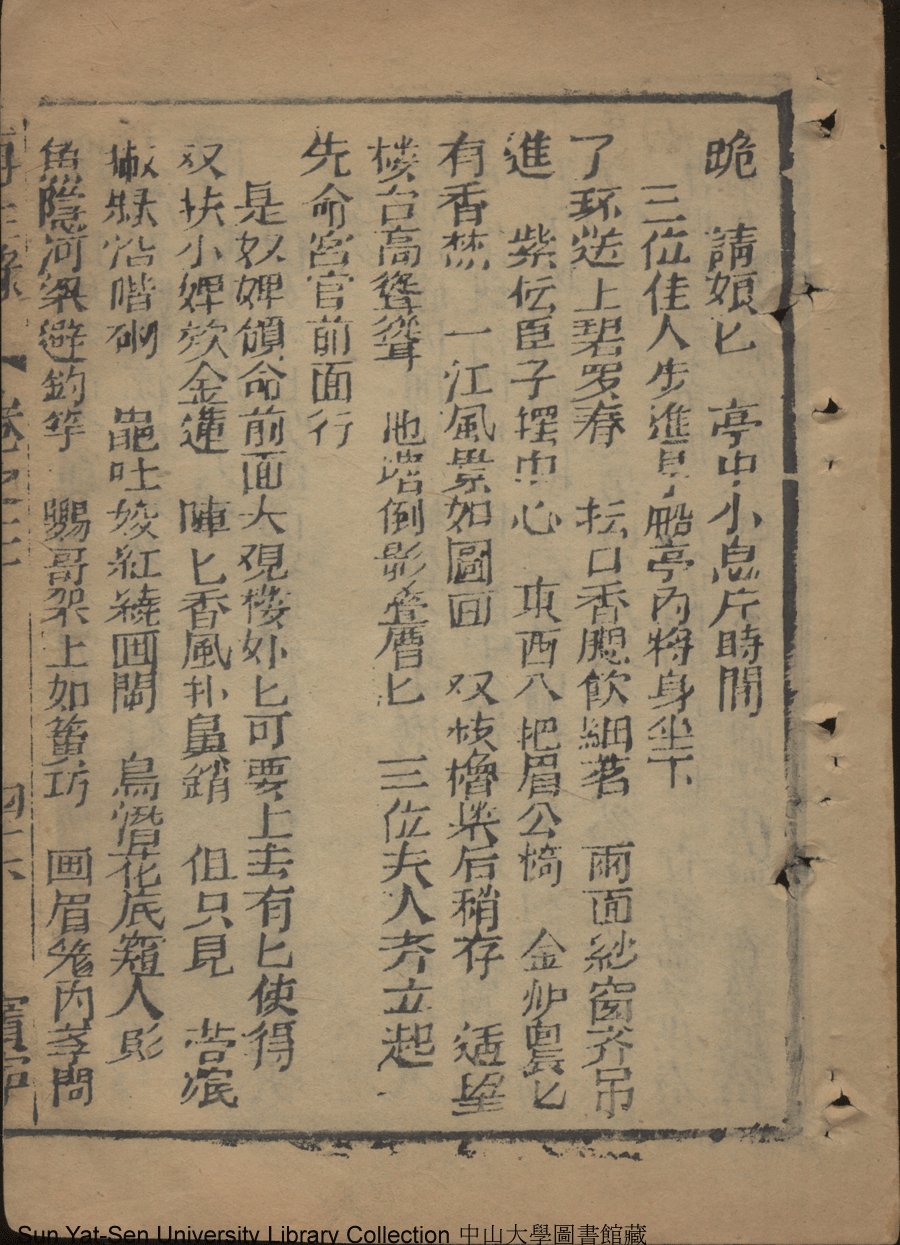 跪　請娘匕　亭中小息片時間
三位佳人步進身船亭內將身坐下
了环送上碧罗春　抎口香腮飲細茗　兩面紗窗齐吊
進　紫伝臣子摆中心　東西八把眉公椅　金炉裊匕
有香焚　一江風景如圖画　双枝櫓槳后稍存　适望
楼台高聳聳　地塔倒影叠層匕　三位夫人齐立起
先命宮官前面行
是奴婢領命前面大观楼外匕可要上去有匕使得
双扶小婢欸金蓮　陣匕香風扑鼻銷　但只見　苔痕
緑沾階砌　吐姣紅繞画閣　鳥潛花底窺人影
魚隐河梁避釣竿　鸚哥架上如簧巧　画眉篭內等間
卷之十　四十六
Sun Yat-Sen University Library Collection 中山大學圖書館藏